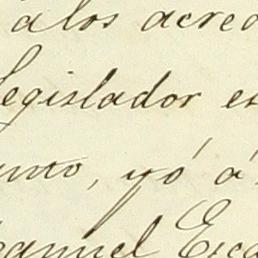 álos acreed
Legislador es
unto, yó á
Manuel Esca